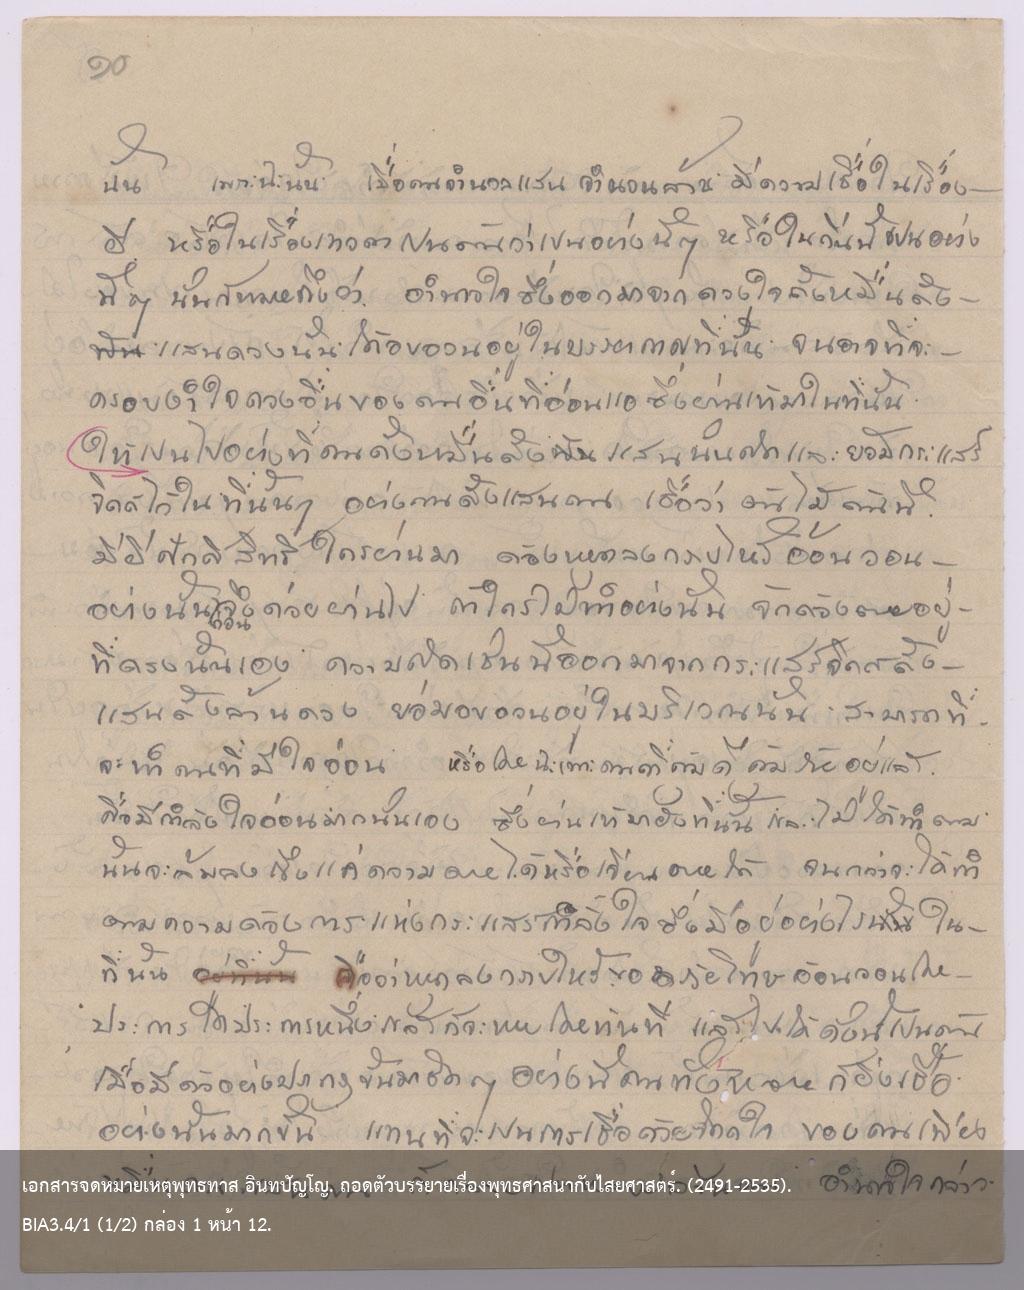 ๑๐
นั้น เพราะฉะนั้น เมื่อคนจำนวนแสน จำนวนล้าน มีความเชื่อในเรื่อง
ผี หรือในเรื่องเทวดา เป็นต้นว่าเป็นอย่างนั้นๆ หรือในถิ่นนี้เป็นอย่าง
นี้ๆ นั้นก็หมายถึงว่า อำนาจใจซึ่งออกมาจากดวงใจตั้งหมื่นตั้ง
แสนดวงนั้น ได้อบอวนอยู่ในบรรยากาศที่นั้น จนอาจที่จะ
ครอบงำใจดวงอื่นของคนอื่นที่อ่อนแอ ซึ่งผ่านเข้ามาในที่นั้น
ให้เป็นไปอย่างที่คนตั้งหมื่นตั้งแสนนั้นคิดและยอมกระแสร์
จิตต์ไว้ในที่นั้นๆ อย่างคนตั้งแสนคน เชื่อว่า ต้นไม้ต้นนี้
มีผีศักดิ์สิทธิ์ ใครผ่านมา ต้องหมดลงกราบไหว้อ้อนวอน
อย่างนั้นก่อนจึงค่อยผ่านไป ถ้าใครไม่ทำอย่างนั้น จักต้องตายอยู่
ที่ตรงนั้นเอง ความคิดเช่นนี้ออกมาจากกระแสร์จิตต์ตั้ง
แสนตั้งล้านดวง ย่อมอบอวนอยู่ในบริเวณนั้น สามารถที่
จะทำคนที่มีใจอ่อน หรือโดยเฉพาะคนที่
คือมีกำลังใจอ่อนมากนั้นเอง ซึ่งผ่านเข้ามายังที่นั้น และไม่ได้ทำตาม
นั้นจะล้มลงถึงแก่ความตายได้หรือเจียนตายได้ จนกว่าจะได้ทำ
ตามความต้องการแห่งกระแสร์กำลังใจซึ่งมีอยู่อย่างไรนั้น ใน
ที่นั้น คือว่าหมดลงกราบไหว้ขออภัยโทษอ้อนวอนโดย
ประการใดประการหนึ่งแล้วก็จะหายโดยทันที แล้วไปได้ดังนี้เป็นต้น
เมื่อมีตัวอย่างปรากฏขึ้นมาชัดๆ อย่างนี้คนทั้งหลาย ก็ยิ่งเชื่อ
อย่างนั้นมากขึ้น แทนที่จะเป็นการเชื่อด้วย ของคนเพียง
เอกสารจดหมายเหตุพุทธทาส อินทปัญโญ. ถอดตัวบรรยายเรื่องพุทธศาสนากับไสยศาสตร์. (2491-2535).
BIA3.4/1 (1/2) กล่อง 1 หน้า 12.